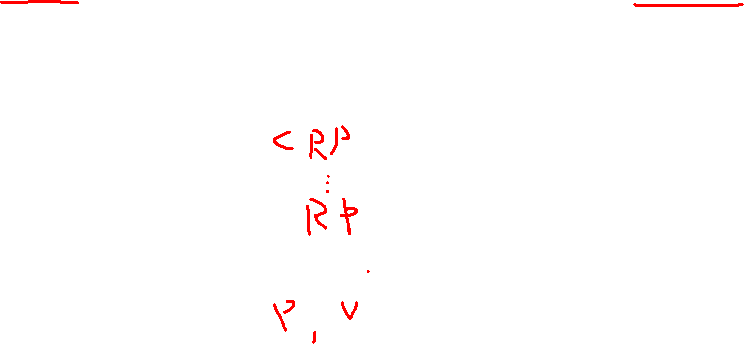 < RP
⋮
Rp
P, V